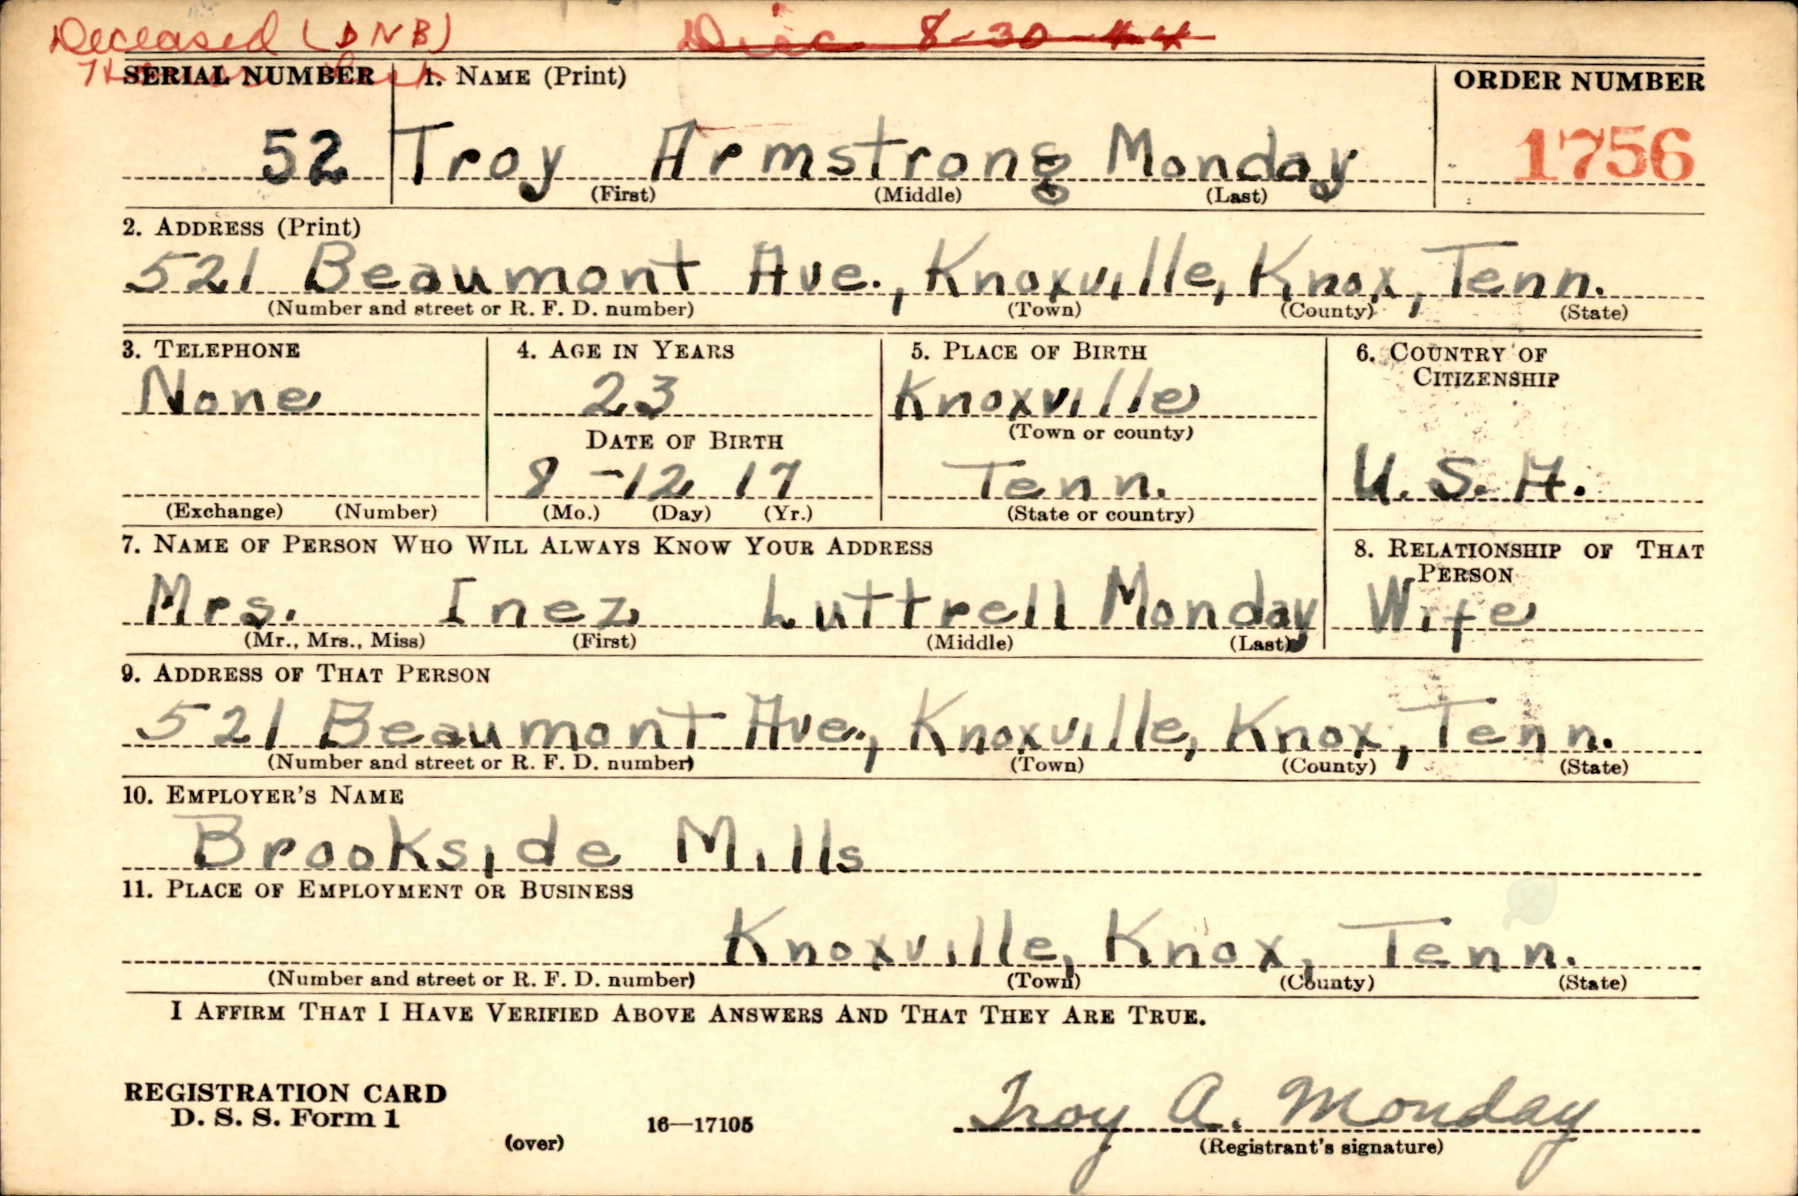 Deceased (DNB) Disc 8-30-44
SERIAL NUMBER 1. NAME (Print) ORDER NUMBER
52 Troy Armstrong Monday 1756
(First) (Middle) (Last)
2. ADDRESS (Print)
521 Beaumont Ave., Knoxville, Knox, Tenn.
(Number and street or R. F. D. number) (Town) (County) (State)
3. TELEPHONE 4. AGE IN YEARS 5. PLACE OF BIRTH 6. COUNTRY OF
CITIZENSHIP
None 23 Knoxville
(Town or county)
DATE OF BIRTH
8-12 17 Tenn. U.S.A.
(Exchange) (Number) (Mo.) (Day) (Yr.) (State or country)
7. NAME OF PERSON WHO WILL ALWAYS KNOW YOUR ADDRESS 8. RELATIONSHIP OF THAT
PERSON
Mrs. Inez Luttrell Monday Wife
(Mr., Mrs., Miss) (First) (Middle) (Last)
9. ADDRESS OF THAT PERSON
521 Beaumont Ave., Knoxville, Knox, Tenn.
(Number and street or R. F. D. number) (Town) (County) (State)
10. EMPLOYER'S NAME
Brookside Mills
11. PLACE OF EMPLOYMENT OR BUSINESS
Knoxville, Knox, Tenn.
(Number and street or R. F. D. number) (Town) (County) (State)
I AFFIRM THAT I HAVE VERIFIED ABOVE ANSWERS AND THAT THEY ARE TRUE.
REGISTRATION CARD
D. S. S. Form 1
(over) 16—17105
Troy A. Monday
(Registrant's signature)